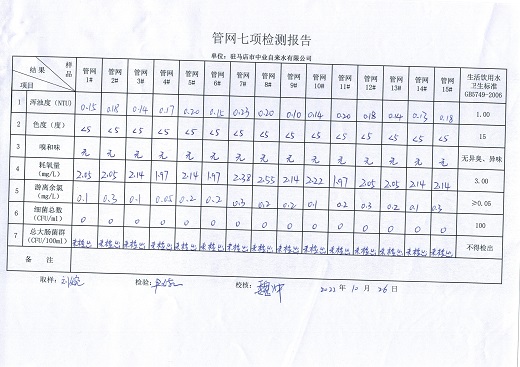 管网七项检测报告
单位：驻马店市中业自来水有限公司
结果 样品 项目 管网1# 管网2# 管网3# 管网4# 管网5# 管网6# 管网7# 管网8# 管网9# 管网10# 管网11# 管网12# 管网13# 管网14# 管网15# 生活饮用水卫生标准GB5749-2006
1 浑浊度（NTU） 0.15 0.18 0.14 0.17 0.20 0.15 0.23 0.20 0.10 0.14 0.20 0.18 0.14 0.13 0.18 1.00
2 色度（度） <5 <5 <5 <5 <5 <5 <5 <5 <5 <5 <5 <5 <5 <5 <5 15
3 嗅和味 无 无 无 无 无 无 无 无 无 无 无 无 无 无 无 无异臭、异味
4 耗氧量（mg/L） 2.05 2.05 2.14 1.97 2.14 1.97 2.38 2.55 2.14 2.22 1.97 2.05 2.05 2.14 2.14 3.00
5 游离余氯（mg/L） 0.1 0.3 0.1 0.05 0.2 0.2 0.3 0.2 0.2 0.1 0.2 0.3 0.2 0.1 0.3 ≥0.05
6 细菌总数（CFU/ml） 0 0 0 0 0 0 0 0 0 0 0 0 0 0 0 100
7 总大肠菌群（CFU/100ml） 未检出 未检出 未检出 未检出 未检出 未检出 未检出 未检出 未检出 未检出 未检出 未检出 未检出 未检出 未检出 不得检出
备 注
取样： 检验： 校核： 2022年10月26日